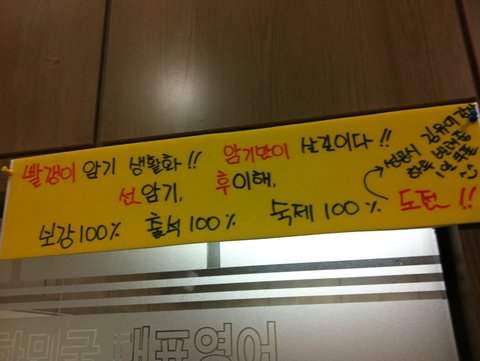 빨갱이 암기 생활화!! 암기만이 살길이다!!
선암기, 후이해,
보강100% 출석100% 숙제100% 도전~!!
성공시 김유미
하루
대한민국 대표영어